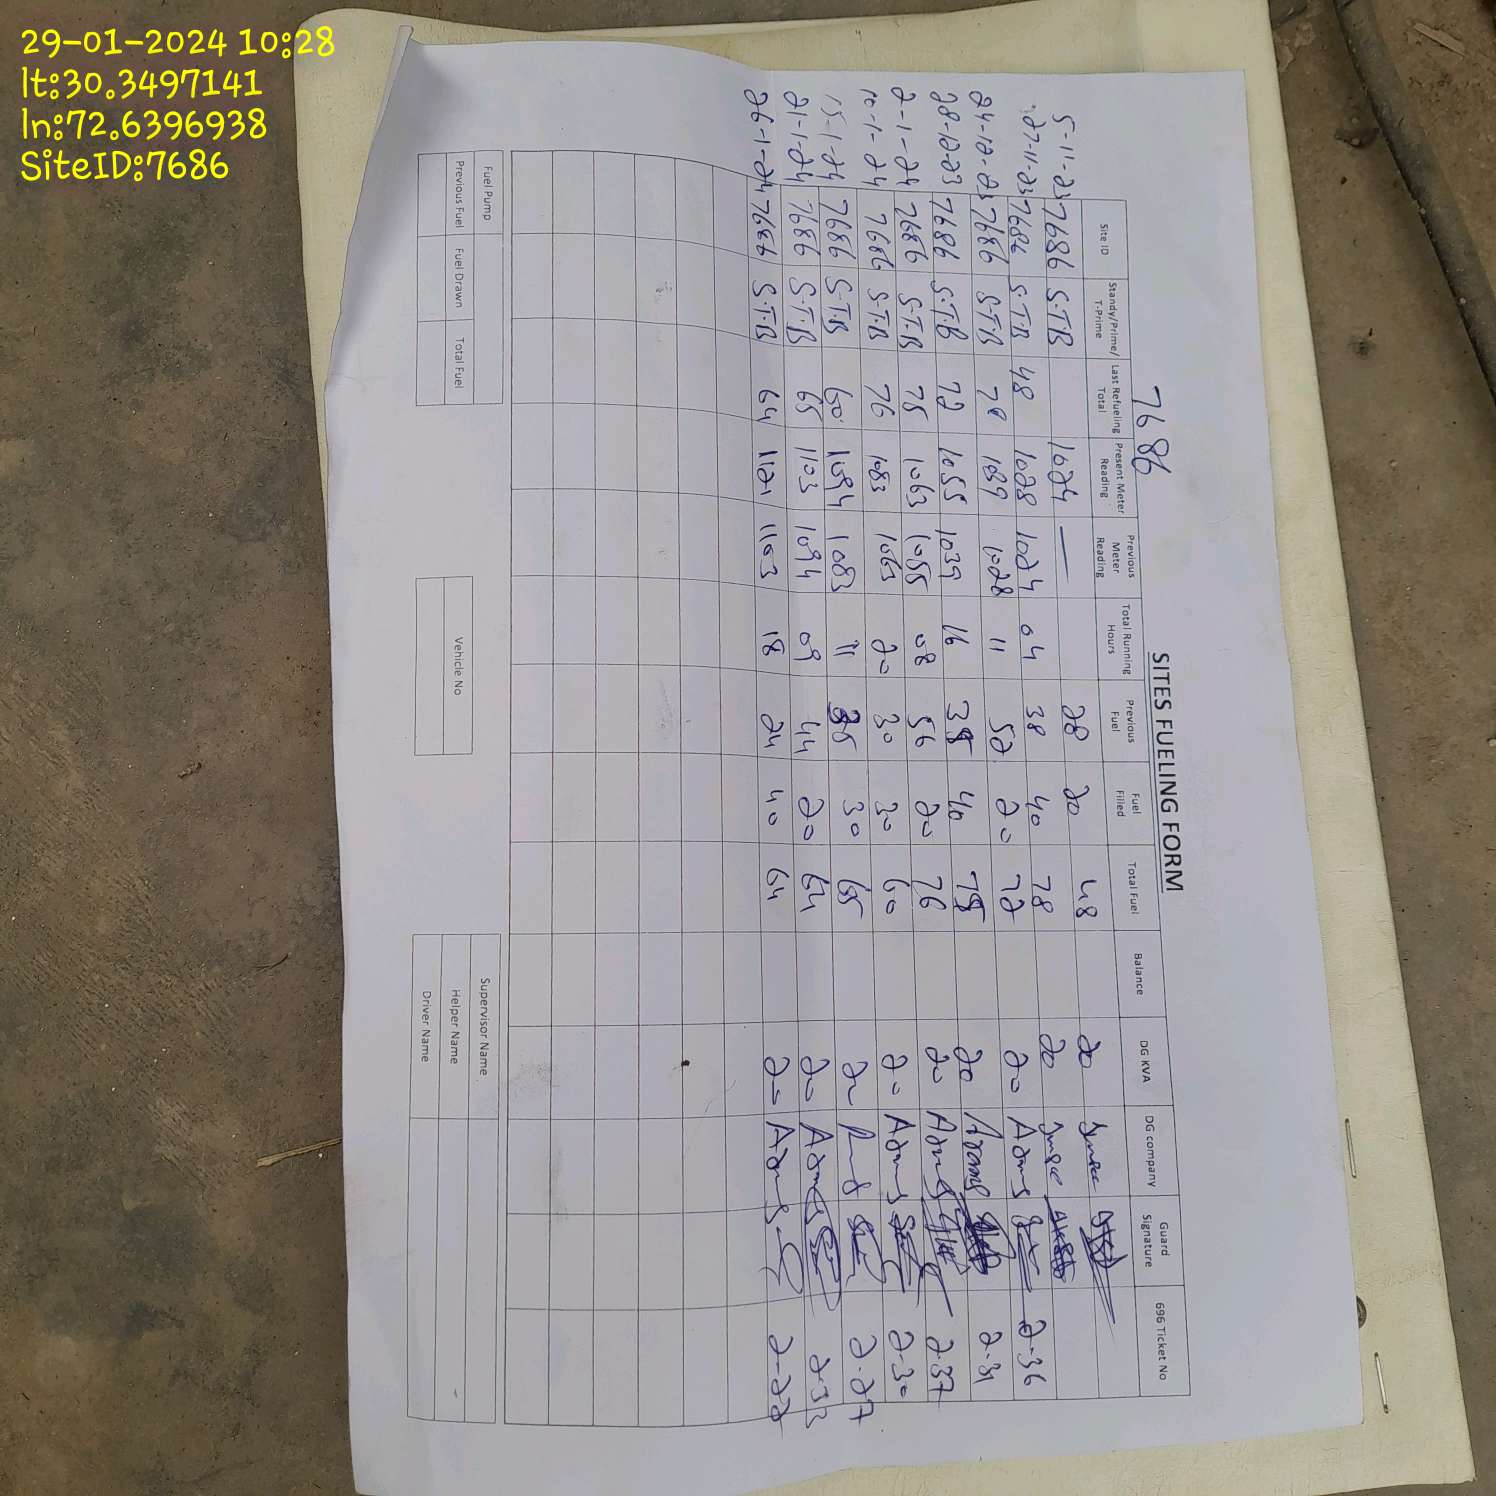 29-01-2024 10:28
lt:30.3497141
ln:72.6396938
SiteID:7686
7686
SITES FUELING FORM
Site ID Standy/Prime/T-Prime Last Refueling Total Present Meter Reading Previous Meter Reading Total Running Hours Previous Fuel Fuel Filled Total Fuel Balance DG KVA DG company Guard Signature 696 Ticket No
5-11-23 7686 S.T.B 1024 — 28 20 48 20
27-11-23 7686 S.T.B 48 1028 1024 04 38 40 78 20
24-12-23 7686 S.T.B 78 1039 1028 11 52 20 72 20 Adms 2.36
28-12-23 7686 S.T.B 72 1055 1039 16 35 40 75 20 2.31
2-1-24 7686 S.T.B 75 1063 1055 08 56 20 76 20 Adms 2.37
10-1-24 7686 S.T.B 76 1083 1063 20 30 30 60 20 Adms 2.30
15-1-24 7686 S.T.B 60 1094 1083 11 35 30 65 20 2.27
21-1-24 7686 S.T.B 65 1103 1094 09 44 20 64 20 Adms 2.33
26-1-24 7686 S.T.B 64 1121 1103 18 24 40 64 20 Adms 2-22
Fuel Pump
Previous Fuel Fuel Drawn Total Fuel
Vehicle No
Supervisor Name
Helper Name
Driver Name